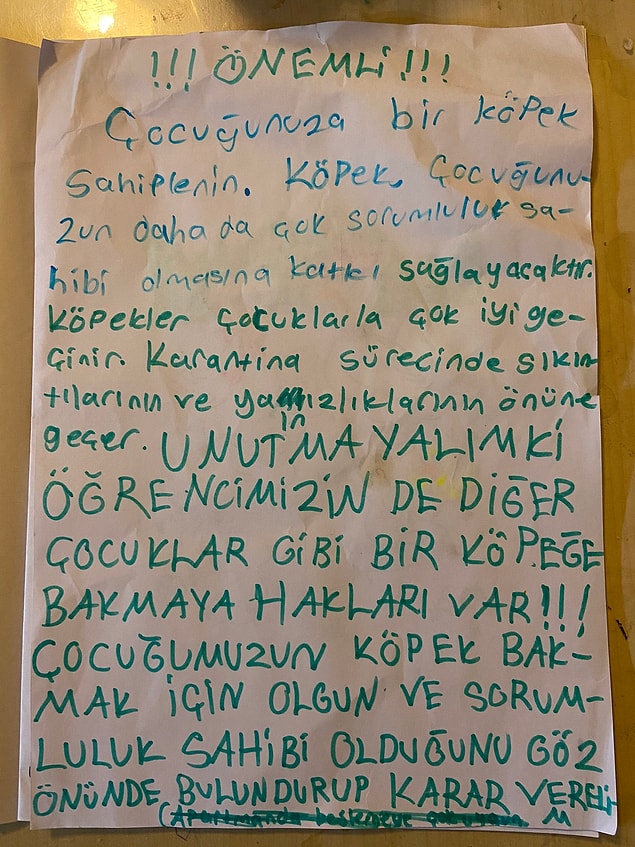 !!! ÖNEMLİ !!!
Çocuğunuza bir köpek
sahiplenin. Köpek, Çocuğunu-
zun daha da çok sorumluluk sa-
hibi olmasına katkı sağlayacaktır.
Köpekler çocuklarla çok iyi ge-
çinir. Karantina sürecinde sıkın-
tılarının ve yalnızlıklarının önüne
geçer. UNUTMAYALIMKİ
ÖĞRENCİMİZİN DE DİĞER
ÇOCUKLAR GİBİ BİR KÖPEĞE
BAKMAYA HAKLARI VAR!!!
ÇOCUĞUMUZUN KÖPEK BAK-
MAK İÇİN OLGUN VE SORUM-
LULUK SAHİBİ OLDUĞUNU GÖZ
ÖNÜNDE BULUNDURUP KARAR VERELİ-
M